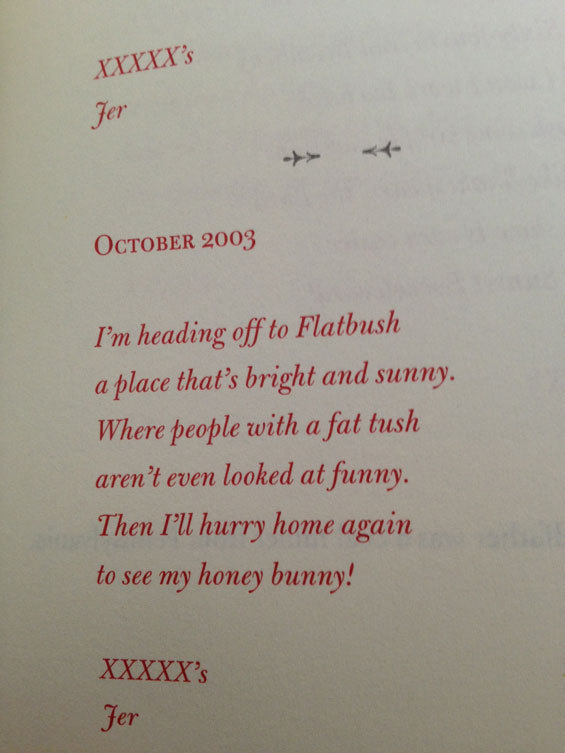 XXXXX's
Jer
October 2003
I'm heading off to Flatbush
a place that's bright and sunny.
Where people with a fat tush
aren't even looked at funny.
Then I'll hurry home again
to see my honey bunny!
XXXXX's
Jer